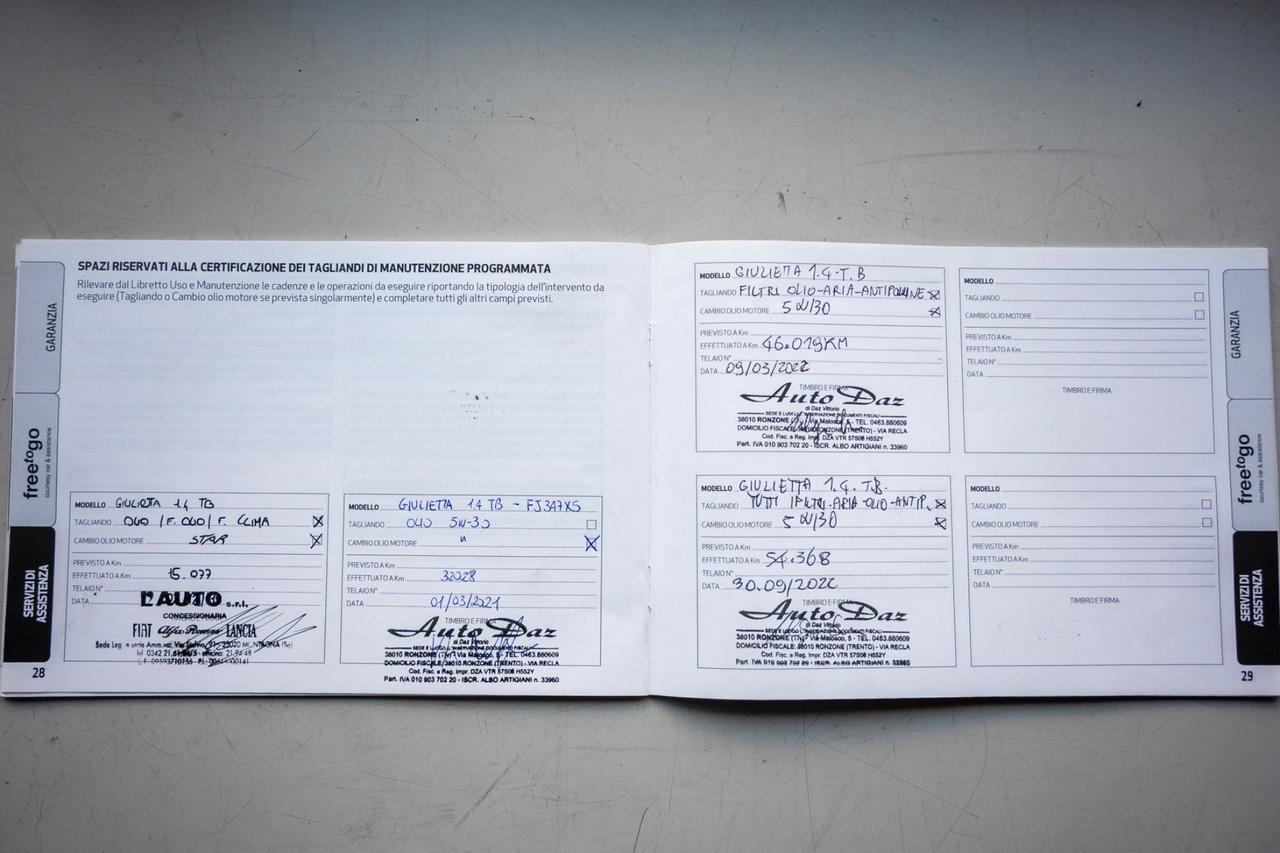 SPAZI RISERVATI ALLA CERTIFICAZIONE DEI TAGLIANDI DI MANUTENZIONE PROGRAMMATA
Rilevare dal Libretto Uso e Manutenzione le cadenze e le operazioni da eseguire riportando la tipologia dell'intervento da
eseguire (Tagliando o Cambio olio motore se prevista singolarmente) e completare tutti gli altri campi previsti.
GARANZIA
freetogo
courtesy car & assistance
SERVIZI DI
ASSISTENZA
MODELLO GIULIETTA 1.4 TB
TAGLIANDO OLIO / F. OLIO / F. CLIMA
CAMBIO OLIO MOTORE STAR
PREVISTO A Km
EFFETTUATO A Km 15.077
TELAIO N°
DATA
L'AUTO s.r.l.
CONCESSIONARIA
FIAT Alfa Romeo LANCIA
28
MODELLO GIULIETTA 1.4 TB - FJ3A7XS
TAGLIANDO OLIO 5W-30
CAMBIO OLIO MOTORE "
PREVISTO A Km
EFFETTUATO A Km 32028
TELAIO N°
DATA 01/03/2021
TIMBRO E FIRMA
Auto Daz
di Daz Vittorio
38010 RONZONE (TN) Via Malosco, 5 - TEL. 0463.880609
DOMICILIO FISCALE: 38010 RONZONE (TRENTO) - VIA RECLA
Cod. Fisc. e Reg. Impr. DZA VTR 57S08 H552Y
Part. IVA 010 903 702 20 - ISCR. ALBO ARTIGIANI n. 33960
MODELLO GIULIETTA 1.4-T.B
TAGLIANDO FILTRI OLIO-ARIA-ANTIPOLLINE
CAMBIO OLIO MOTORE 5W/30
PREVISTO A Km
EFFETTUATO A Km 46.019KM
TELAIO N°
DATA 09/03/2022
TIMBRO E FIRMA
Auto Daz
di Daz Vittorio
38010 RONZONE (TN) Via Malosco, 5 - TEL. 0463.880609
DOMICILIO FISCALE: 38010 RONZONE (TRENTO) - VIA RECLA
Cod. Fisc. e Reg. Impr. DZA VTR 57S08 H552Y
Part. IVA 010 903 702 20 - ISCR. ALBO ARTIGIANI n. 33960
MODELLO
TAGLIANDO
CAMBIO OLIO MOTORE
PREVISTO A Km
EFFETTUATO A Km
TELAIO N°
DATA
TIMBRO E FIRMA
MODELLO GIULIETTA 1.4. T.B.
TAGLIANDO TUTTI I FILTRI-ARIA-OLIO-ANTIP.
CAMBIO OLIO MOTORE 5W/30
PREVISTO A Km
EFFETTUATO A Km 54.368
TELAIO N°
DATA 30.09/2022
TIMBRO E FIRMA
Auto Daz
di Daz Vittorio
38010 RONZONE (TN) Via Malosco, 5 - TEL. 0463.880609
DOMICILIO FISCALE: 38010 RONZONE (TRENTO) - VIA RECLA
Cod. Fisc. e Reg. Impr. DZA VTR 57S08 H552Y
MODELLO
TAGLIANDO
CAMBIO OLIO MOTORE
PREVISTO A Km
EFFETTUATO A Km
TELAIO N°
DATA
TIMBRO E FIRMA
GARANZIA
freetogo
courtesy car & assistance
SERVIZI DI
ASSISTENZA
29